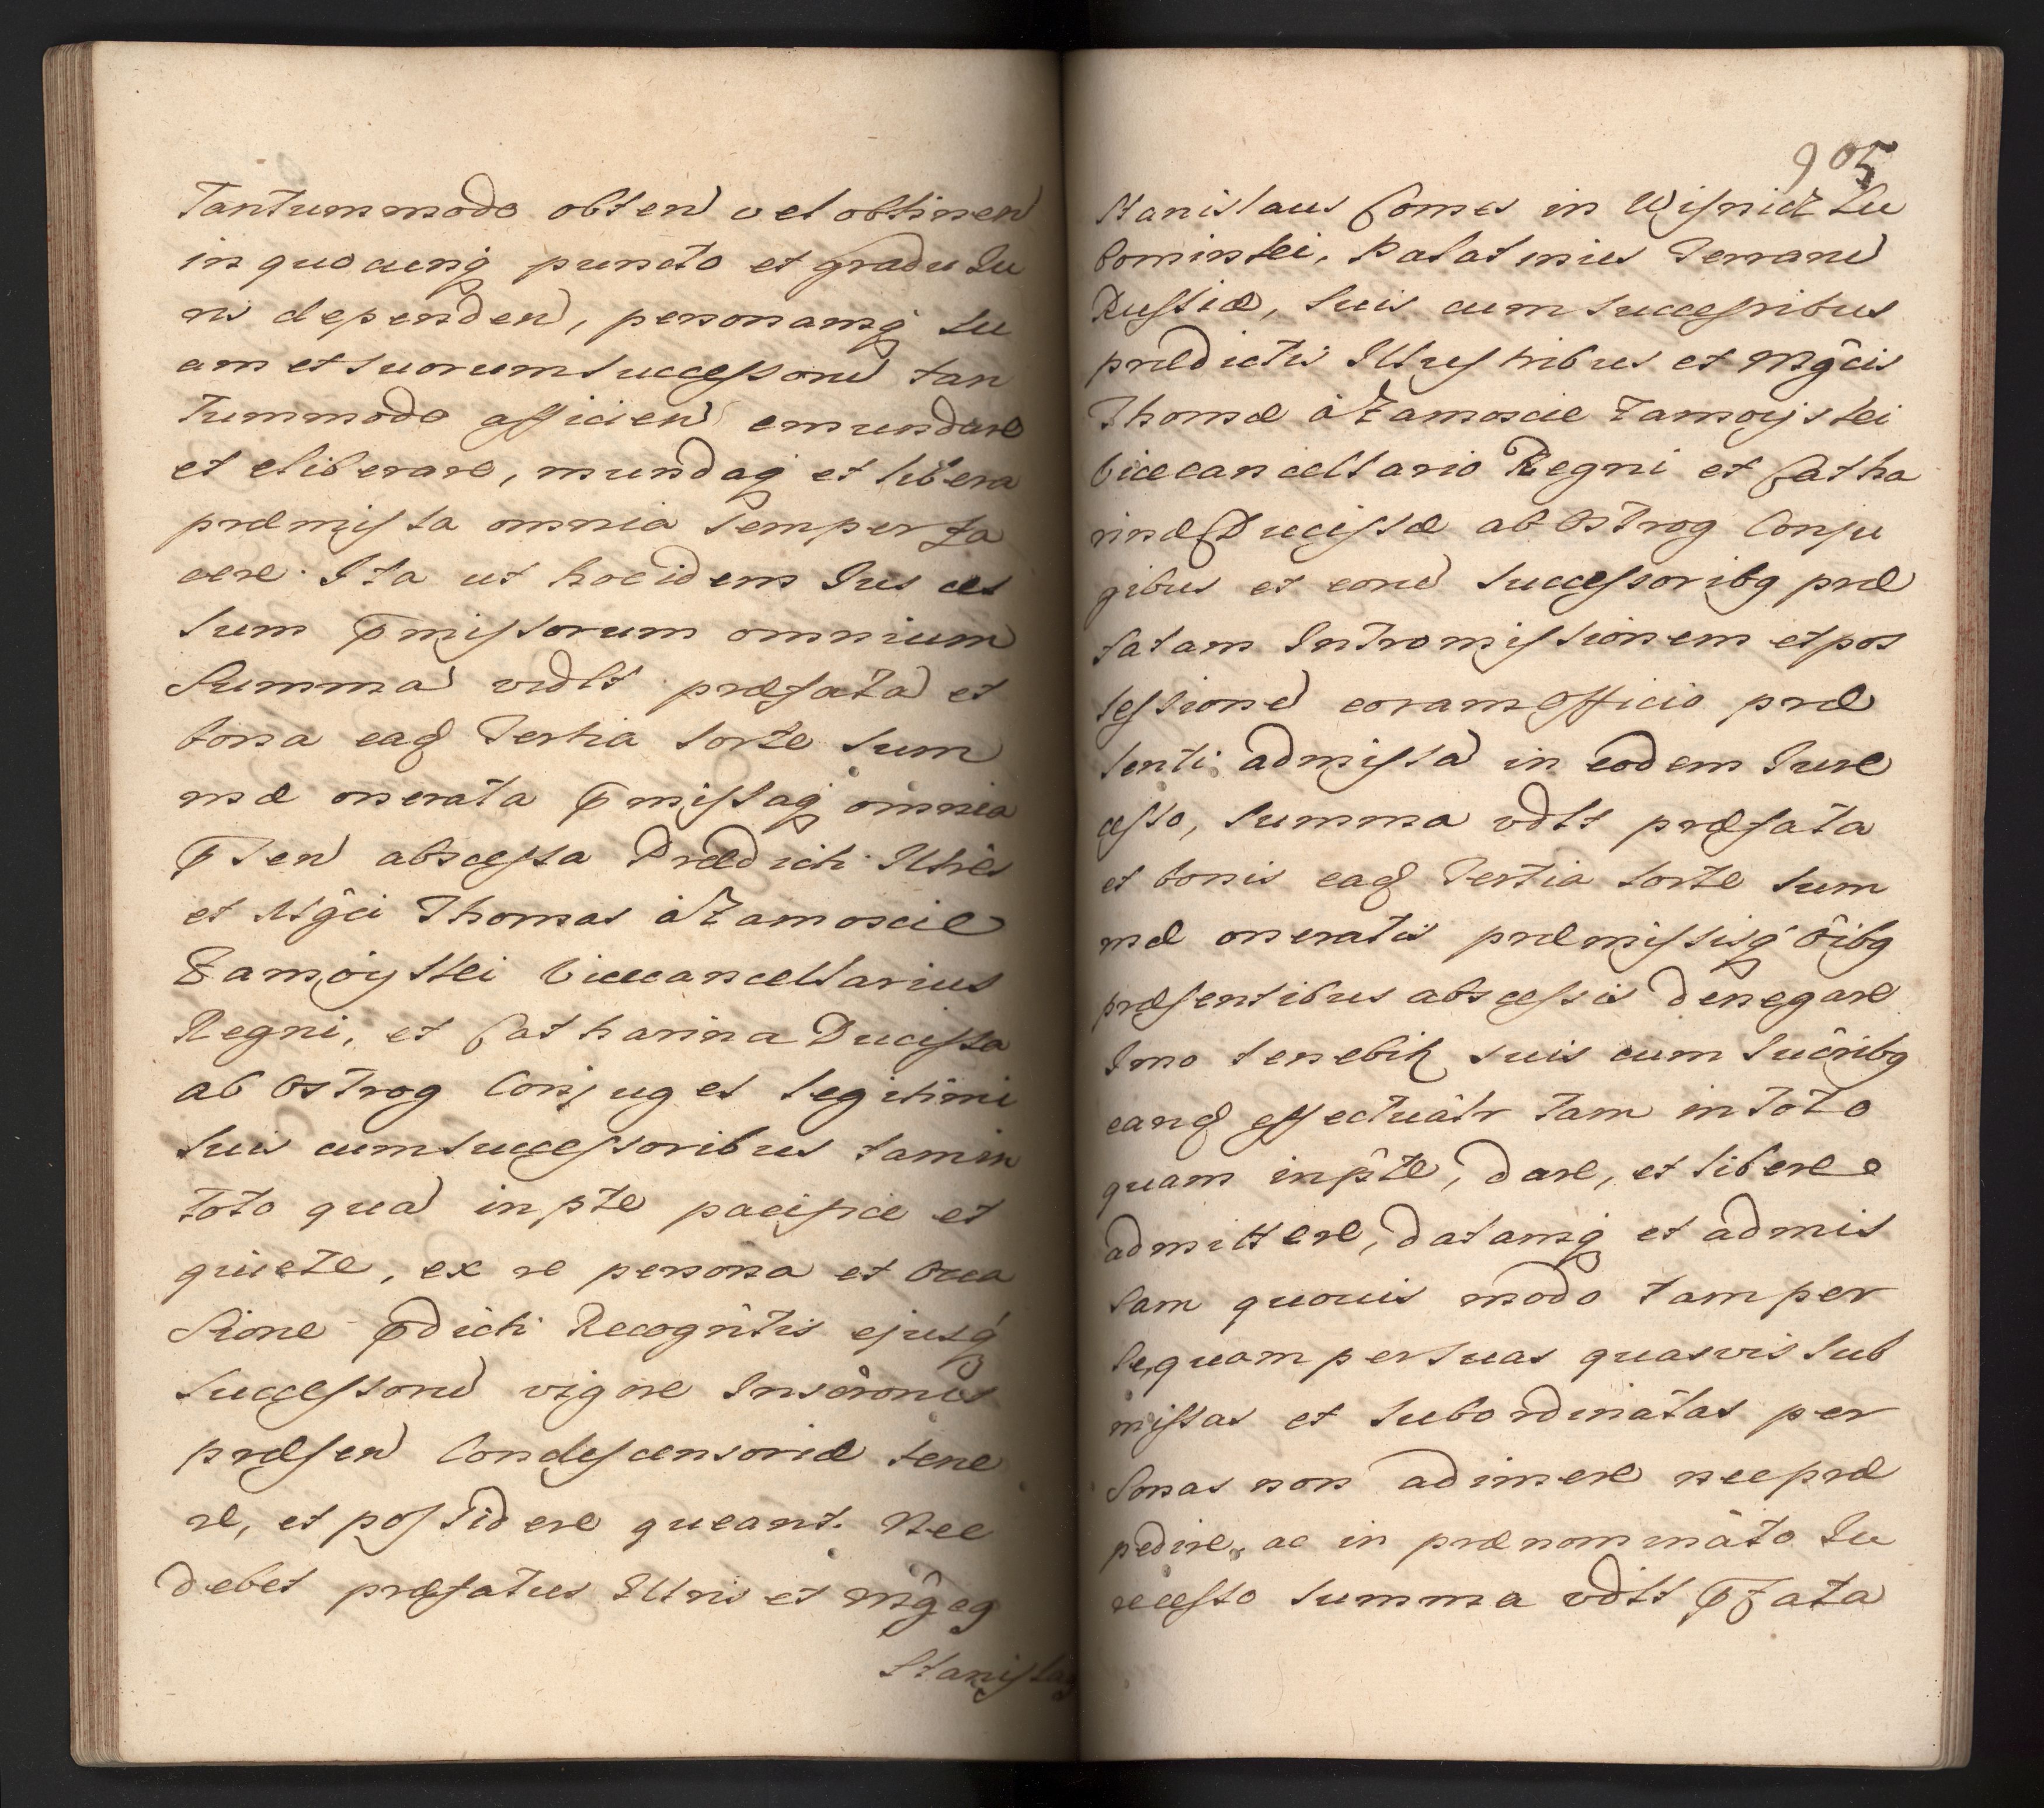 Tantummodo obten vel obtinen
in quocunq puncto et gradu Iu
ris dependen, personamq su
am et suorum successoru tan
tummodo afficien emundare
et eliberare, mundaq et libera
præmissa omnia semper fa
cere. Ita ut hoc idem Ius ces
sum pmissorum omnium
Summa vdlt præfata et
bona eaq Tertia sorte sum
mæ onerata pmissaq omnia
pten abscessa Prædicti Illres
et Mgci Thomas à Zamoscie
Zamoyski Vicecancellarius
Regni, et Catharina Ducissa
ab Ostrog Conjuges legitimi
suis cum successoribus tam in
toto qua in pte pacifice et
quiete, ex re persona et Occa
sione pdicti Recogntis ejusq
successoru vigore Inscronis
præsen Condescensoriæ tene
re, et possidere queant. Nec
debet præfatus Illris et Mgcg
Stanislaq
905
Stanislaus Comes in Wisnicz Lu
bomirski, Palatinus Terraru
Russiæ, suis cum successribus
prædictis Illustribus et Mgcis
Thomæ à Zamoscie Zamoyski
Vicecancellario Regni et Catha
rinæ Ducissæ ab Ostrog Conju
gibus et eoru successoribq præ
fatam Intromissionem et pos
sessione coram Officio præ
senti admissa in eodem Iure
cesso, summa vdlt præfata
et bonis eaq Tertia sorte sum
mæ oneratis præmissisq oibq
præsentibus abscessis denegare
Imo tenebitr suis cum sucribq
eanq effectualr tam in toto
quam in pte, dare, et libere
admittere, datamq et admis
sam quovis modo tam per
se, quam per suas quasvis sub
missas et subordinatas per
sonas non adimere nec præ
pedire, ac in prænominato Iu
re cesso summa vdlt pfata